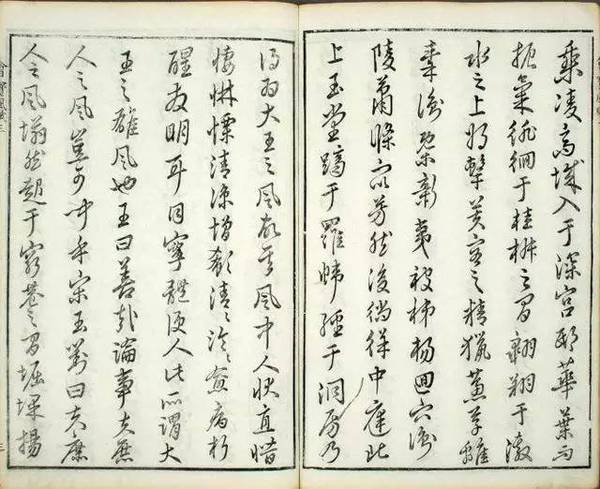 乘凌高城入于深宮邸華葉而
振氣徘徊于桂椒之間翱翔于激
水之上將擊芙容之精獵蕙草離
秦衡槩新夷被稊楊迴穴衝
陵蕭條眾芳然後徜徉中庭北
上玉堂躋于羅帷經于洞房乃
得為大王之風故其風中人狀直憯
悽惏慄清涼增欷清〻泠〻愈病析
酲發明耳目寧體便人此所謂大
王之雄風也王曰善哉論事夫庶
人之風豈可聞乎宋玉對曰夫庶
人之風塕然起于窮巷之間堀堁揚